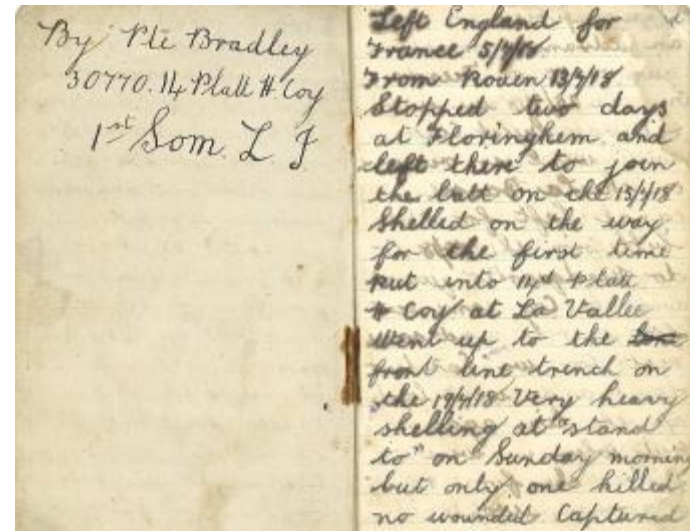 By Pte Bradley
30770. 14 Platt H. Coy
1st Som. L I
Left England for
France 5/4/18
From Rouen 13/4/18
Stopped two days
at Floringhem and
left there to join
the batt on the 15/4/18
Shelled on the way
for the first time
put into 14th Platt
H Coy at La Vallee
Went up to the
front line trench on
the 19/4/18 Very heavy
shelling at "stand
to" on Sunday morning
but only one killed
no wounded Captured